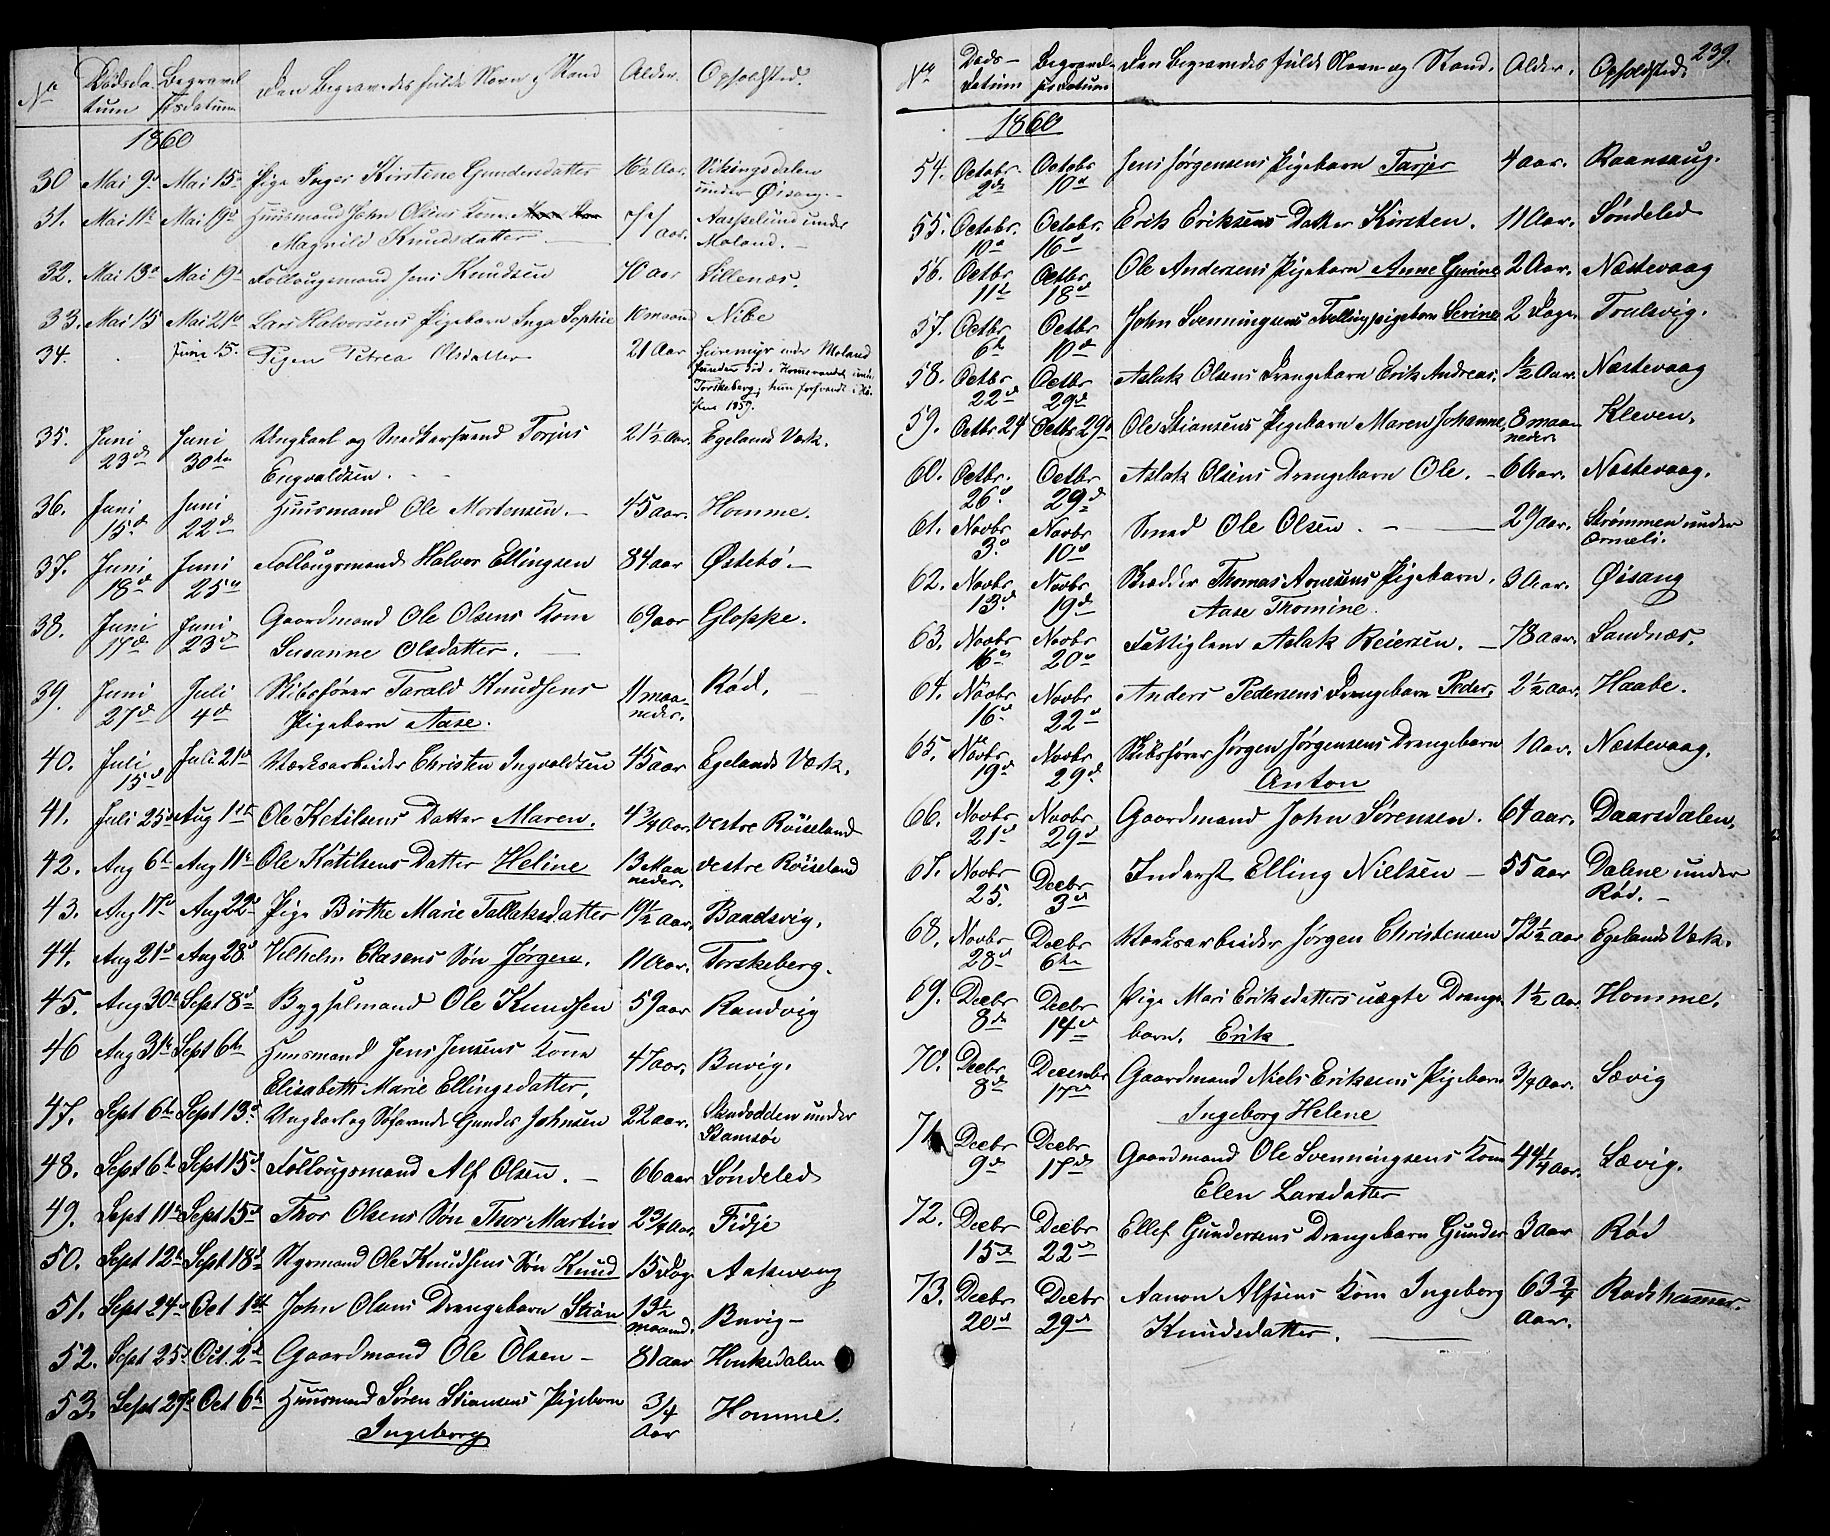 No Dødsdatum Begravelsesdatum Den Begravedes fulde Navn og Stand Alder. Opholdsted.
1860
30 Mai 9d Mai 15d Pige Inger Kirstine Gundersdatter 16½ Aar. Vikingsdalen under Øisang.
31. Mai 11te Mai 19d Huusmand John Olsens Kone Magnild Knudsdatter aar. under Moland.
32. Mai 13d Mai 19d Follougsmand Jens Knudsen 70 aar Lillenæs.
33. Mai 15 Mai 21d Lars Halvorsens Pigebarn Inga Sophie 10 maaned Nibe
34. Juni 15. Pigen Petrea Olsdatter 21 Aar Furemyr under Moland funden død i under Torskeberg, hun forsvandt i 1859.
35. Juni 23d Juni 30te Ungkarl og Snedkersvend Torjus
Engvaldsen. 21½ Aar. Egelands Værk.
36. Juni 15d Juni 22d Huusmand Ole Mortensen. 45 aar. Homme.
37. Juni 18d Juni 25d Follougsmand Halvor Ellingsen 84 aar Østebø.
38. Juni 17de Juni 23d Gaardmand Ole Olsens Kone
Susanne Olsdatter. 69 aar Gloppe.
39. Juni 27d Juli 4d Skibsfører Tarald Knudsens
Pigebarn Aase. 11 maaneder. Rød.
40. Juli 15d Juli 21d Værksarbeider Christen Ingvaldsen 45 aar Egelands Værk.
41. Juli 25d Aug 1ste Ole Ketilsens Datter Maren. 4¾ Aar. vestre Röiseland
42. Aug 6te Aug 11te Ole Ketilsens Datter Heline 13 Maaneder. vestre Röiseland
43. Aug 17d Aug 22d Pige Birthe Marie Tallaksdatter 19½ aar. Baadsvig.
44. Aug 21d Aug 28d Vilhelm Clasens Søn Jørgen. 11 Aar. Torskeberg.
45. Aug 30te Sept 8d Bygselmand Ole Knudsen 59 aar Randvig
46 Aug 31te Sept 6te Huusmand Jens Jensens Kone
Elisabeth Marie Ellingsdatter. 47 aar. Buvig.
47. Sept 6te Sept 13d Ungkarl og Søfarende Gunder Johnsen 22 aar. Sandodden under Stamsøe
48. Sept 6te Sept 15d Follougsmand Alf Olsen. 66 aar Søndeled
49. Sept 11te Sept 15d Thor Olsens Søn Thor Martin 2¾ Aar. Fidje
50. Sept 12te Sept 18d Ole Knudsens Søn Knud 15 Dage Aakevaag
51. Sept 24d Oct 1ste John Olsens Drengebarn 13½ maaned. Buvig
52. Sept 25d Oct. 2d Gaardmand Ole Olsen 81 aar Henkedalen
53. Sept 29d Oct 6te Huusmand Søren Stiansens Pigebarn
Ingeborg ¾ Aar Homme.
239.
No Dødsdatum Begravelsesdatum Den Begravedes fulde Navn og Stand. Alder. Opholdsted.
1860
54. Octobr 2de Octobr 10d Jens Jørgensens Pigebarn Tarjer 4 aar. Raansaug.
55. Octobr. 10d Octobr. 16d Erik Eriksens Datter Kirsten. 11 Aar. Søndeled
56. Octbr 11te Octbr 18d Ole Andersens Pigebarn Anne Gurine 2 Aar. Næstevaag
57. Octbr 6te Octbr 10de John Svenningsens Tvillingpigebarn Serine 2 Dage. Trulsvig.
58. Octbr 22d Octbr 29d Aslak Olsens Drengebarn Erik Andreas. ½ Aar. Næstevaag
59. Octbr 24 Octbr 29d Ole Stiansens Pigebarn Maren Johanne 8 maaneder Kleven.
60. Octbr. 26d Octbr 29d Aslak Olsens Drengebarn Ole. 6 Aar. Næstevaag.
61. Novbr 3d Novbr 10d Smed Ole Olsen. 29 aar. Strømmen under Ormeli.
62. Novbr 13d Novbr 19d Thomas Arnesens Pigebarn.
Aase Thomine. 3 Aar. Øisang
63. Novbr 16d Novbr 20d Fattiglem Aslak Reiersen. 78 aar. Sandnæs.
64. Novbr 16d Novbr 22d Anders Pedersens Drengebarn Peder. 2½ aar. Haabe.
65. Novbr 19d Novbr 29d Skibsfører Jørgen Jørgensens Drengebarn
Anton 1 Aar. Næstevaag.
66. Novbr 21d Novbr 29d Gaardmand John Sørensen. 64 aar. Daarsdalen.
67. Novbr 25. Decbr 3d Inderst Elling Nielsen 55 aar Dalene under Rød.
68. Novbr 28d Decbr 6te Værksarbeider Jørgen Christensen 72½ aar Egelands Værk.
69. Decbr 8de Decbr 14d Pige Mari Eriksdatters uægte Drengebarn. Erik 1½ Aar Homme.
70. Decbr 8de December 17de Gaardmand Niels Eriksens Pigebarn
Ingeborg Helene ¾ Aar. Sævig
71. Decbr 9de Decbr 17de Gaardmand Ole Svenningsens Kone
Elen Larsdatter 44¼ Aar. Sævig.
72. Decbr 15de Decbr 22d Ellef Gundersens Drengebarn Gunder 3 aar Rød
73. Decbr 20d Decbr 29d Aanon Alfsens Kone Ingeborg
Knudsdatter. 63¾ Aar.